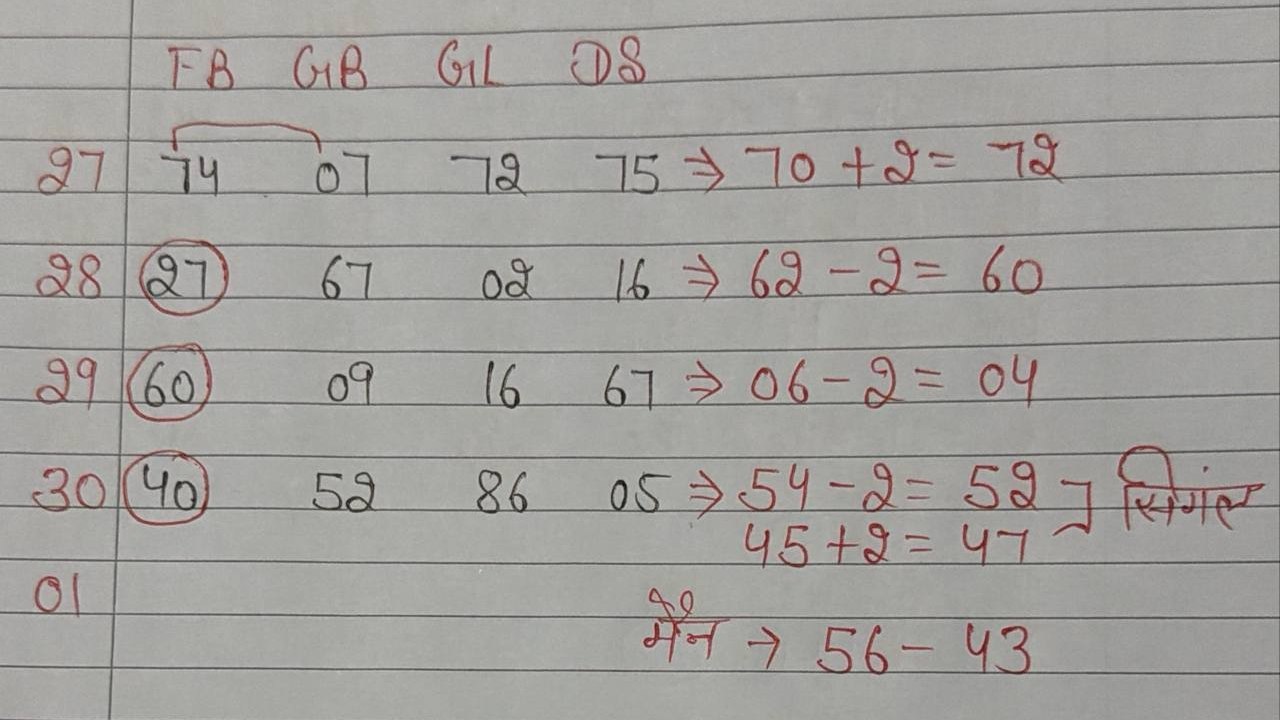 FB GB GL DS
27 74 07 72 75 ⇒ 70 + 2 = 72
28 27 67 02 16 ⇒ 62 - 2 = 60
29 60 09 16 67 ⇒ 06 - 2 = 04
30 40 52 86 05 ⇒ 54 - 2 = 52 ] सिंगल
45 + 2 = 47
01
मेन → 56 - 43